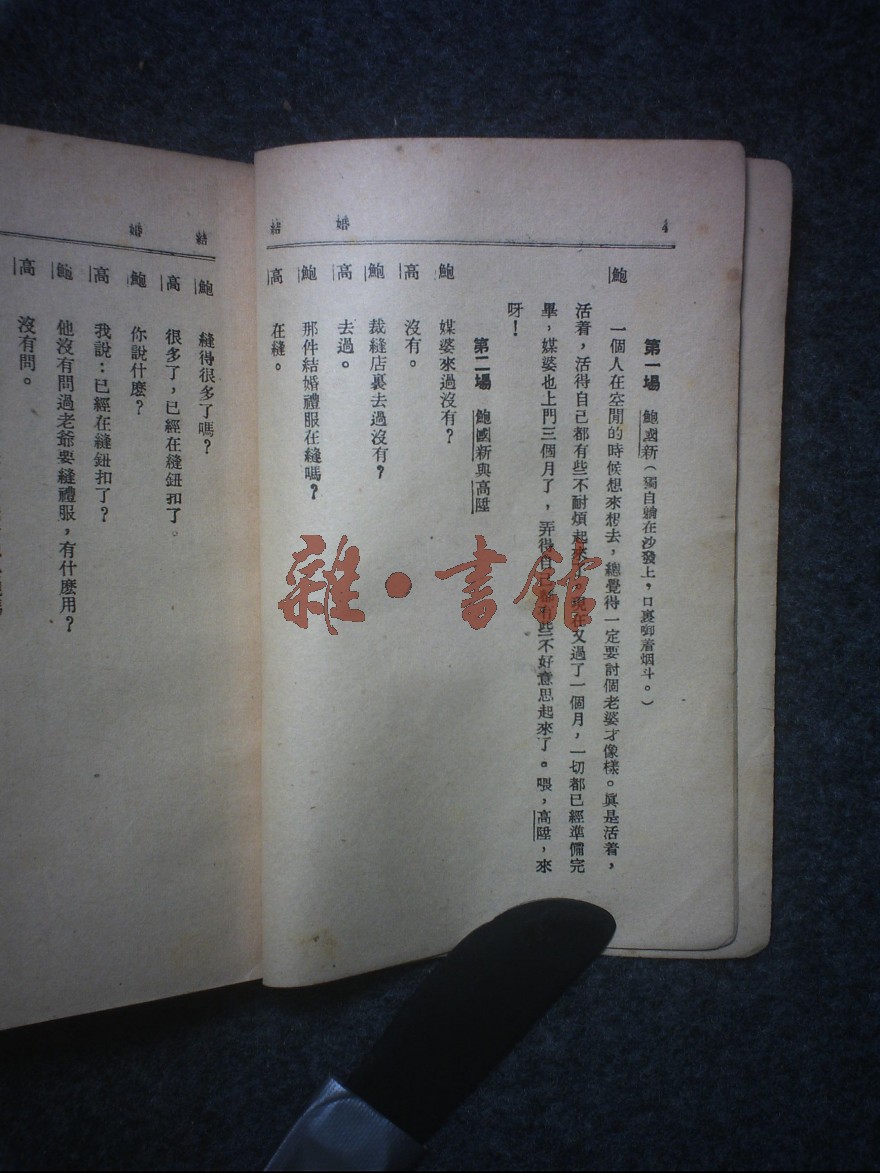 4
結婚
第一場 鮑國新(獨自躺在沙發上,口裏啣着烟斗。)
鮑 一個人在空閒的時候想來想去,總覺得一定要討個老婆才像樣。眞是活着,
活着,活得自己都有些不耐煩起來了。現在又過了一個月,一切都已經準備完
畢,媒婆也上門三個月了,弄得自己都有些不好意思起來了。喂,高陞,來
呀!
第二場 鮑國新與高陞
鮑 媒婆來過沒有?
高 沒有。
鮑 裁縫店裏去過沒有?
高 去過。
鮑 那件結婚禮服在縫嗎?
高 在縫。
結婚
鮑 縫得很多了嗎?
高 很多了,已經在縫鈕扣了。
鮑 你說什麼?
高 我說:已經在縫鈕扣了?
鮑 他沒有問過老爺要縫禮服,有什麼用?
高 沒有問。
雜·書館